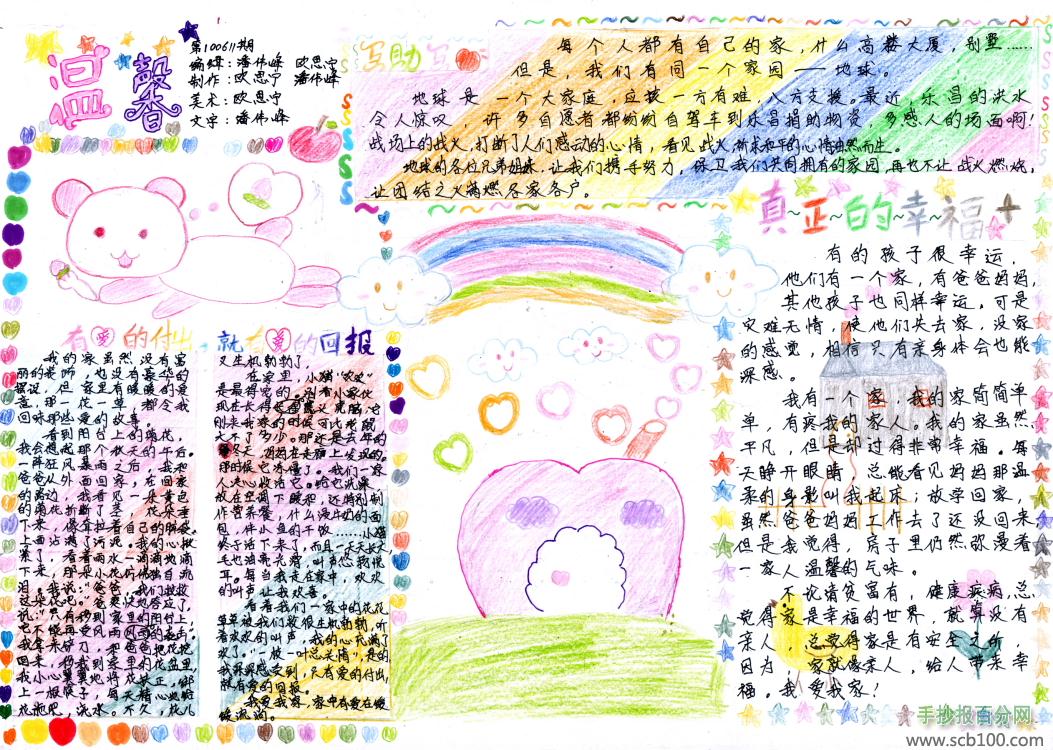 温馨
第100611期
编辑：潘伟峰 欧思宁
制作：欧思宁 潘伟峰
美术：欧思宁
文字：潘伟峰
互助互
每个人都有自己的家，什么高楼大厦，别墅……
但是，我们有同一个家园——地球。
地球是一个大家庭，应该一方有难，八方支援。最近，乐昌的洪水
令人惊叹，许多自愿者都纷纷自驾车到乐昌捐助物资，多感人的场面啊！
战场上的战火，打断了人们感动的心情，看见战火祈求和平的心情油然而生。
地球的各位兄弟姐妹，让我们携手努力，保卫我们共同拥有的家园，再也不让战火燃烧，
让团结之火满燃各家各户。
真正的幸福
有的孩子很幸运，
他们有一个家，有爸爸妈妈，
其他孩子也同样幸运，可是
灾难无情，使他们失去家，没家
的感觉，相信只有亲身体会也能
深感。
我有一个家，我的家简简单
单，有疼我的家人。我的家虽然
平凡，但是却过得非常幸福。每
天睁开眼睛，总能看见妈妈那温
柔的身影叫我起床；放学回家，
虽然爸爸妈妈工作去了还没回来，
但是我觉得，房子里仍然弥漫着
一家人温馨的气味。
不论清贫富有，健康疾病，总
觉得家是幸福的世界，就算没有
亲人，总觉得家是有安全之所，
因为，家就像亲人，给人带来幸
福。我爱我家！
有爱的付出，就有爱的回报
我的家虽然没有富
丽的装饰，也没有豪华的
摆设，但家里有暖暖的爱
意，那一花一草，都令我
回味那些爱的故事。
看到阳台上的菊花，
我会想起那个秋天的午后。
一阵狂风暴雨之后，我和
爸爸从外面回家，在回家
的路边，我看见一朵黄色
的菊花折断了茎，花朵垂
下来，
上面沾满了污泥。我的心揪
紧了，看着雨水一滴滴地滴
下来，那朵小花仿佛独自流
泪。我说：“爸爸，我们救救
这朵花吧。”爸爸爽快地答应了，
说：“只有移到家里的阳台上，
它不能再受风雨
我拿来铲刀，和爸爸把花挖
回来，移栽到家里的花盆里，
我小心翼翼地将花扶正，绑
上一根筷子，每天精心地给
花施肥，浇水。不久，花儿
又生机勃勃了。
在家里，小猫“欢欢”
是最得宠的。别看小家伙
现在长得
刚来我家的时候可比老鼠
大不了多少。那还是去年的
冬天，妈妈在走廊上发现的。
那时候它冻僵了。我们一家
人决心收活它。给它洗澡，
放在空调下暖和，还特别制
作营养餐，什么浸牛奶的面
包，伴小鱼的干饭……小猫
终于活下来了，而且一天天长大，
毛也油亮光滑，叫声悠我悦
耳。每当我走在家中，欢欢
的叫声让我欢喜。
看着我们一家中的花花
草草被我们救得生机勃勃，听
着欢欢的叫声，我的心充满了
欢乐，“一枝一叶总关情”，是的
我深深感受到，只有爱的付出，
就有爱的回报。
我爱我家，家中有爱在缓
缓流淌。
手抄报百分网
www.scb100.com